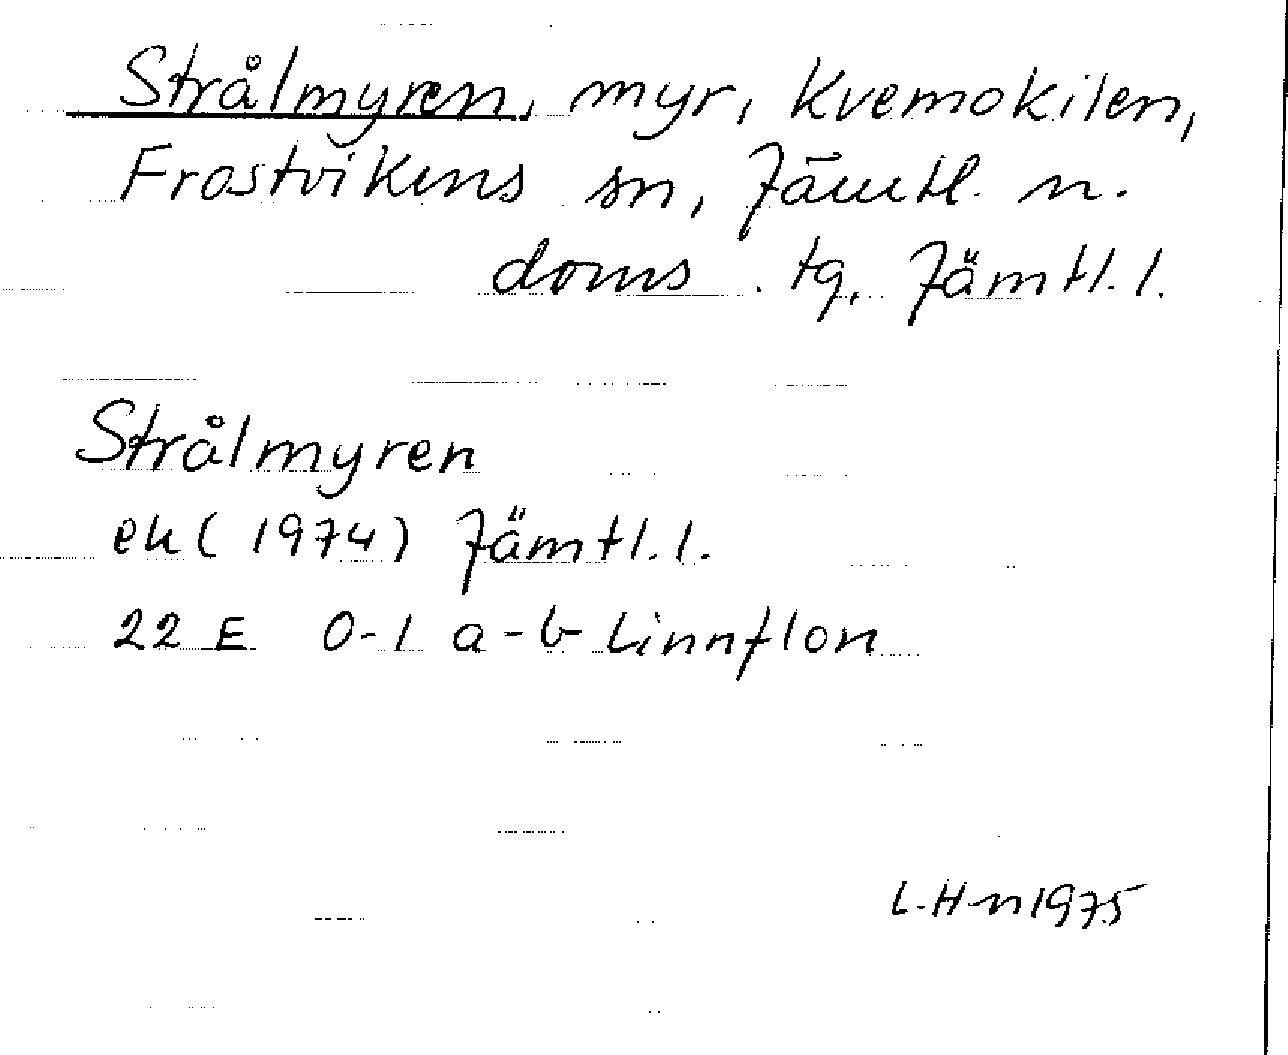 Strålmyren, myr, Kvemokilen,
Frostvikens sn, Jämtl. n.
doms. tg, Jämtl. l.
Strålmyren
ek (1974) Jämtl. l.
22 E 0-1 a-b Linnflon
L-H-n 1975